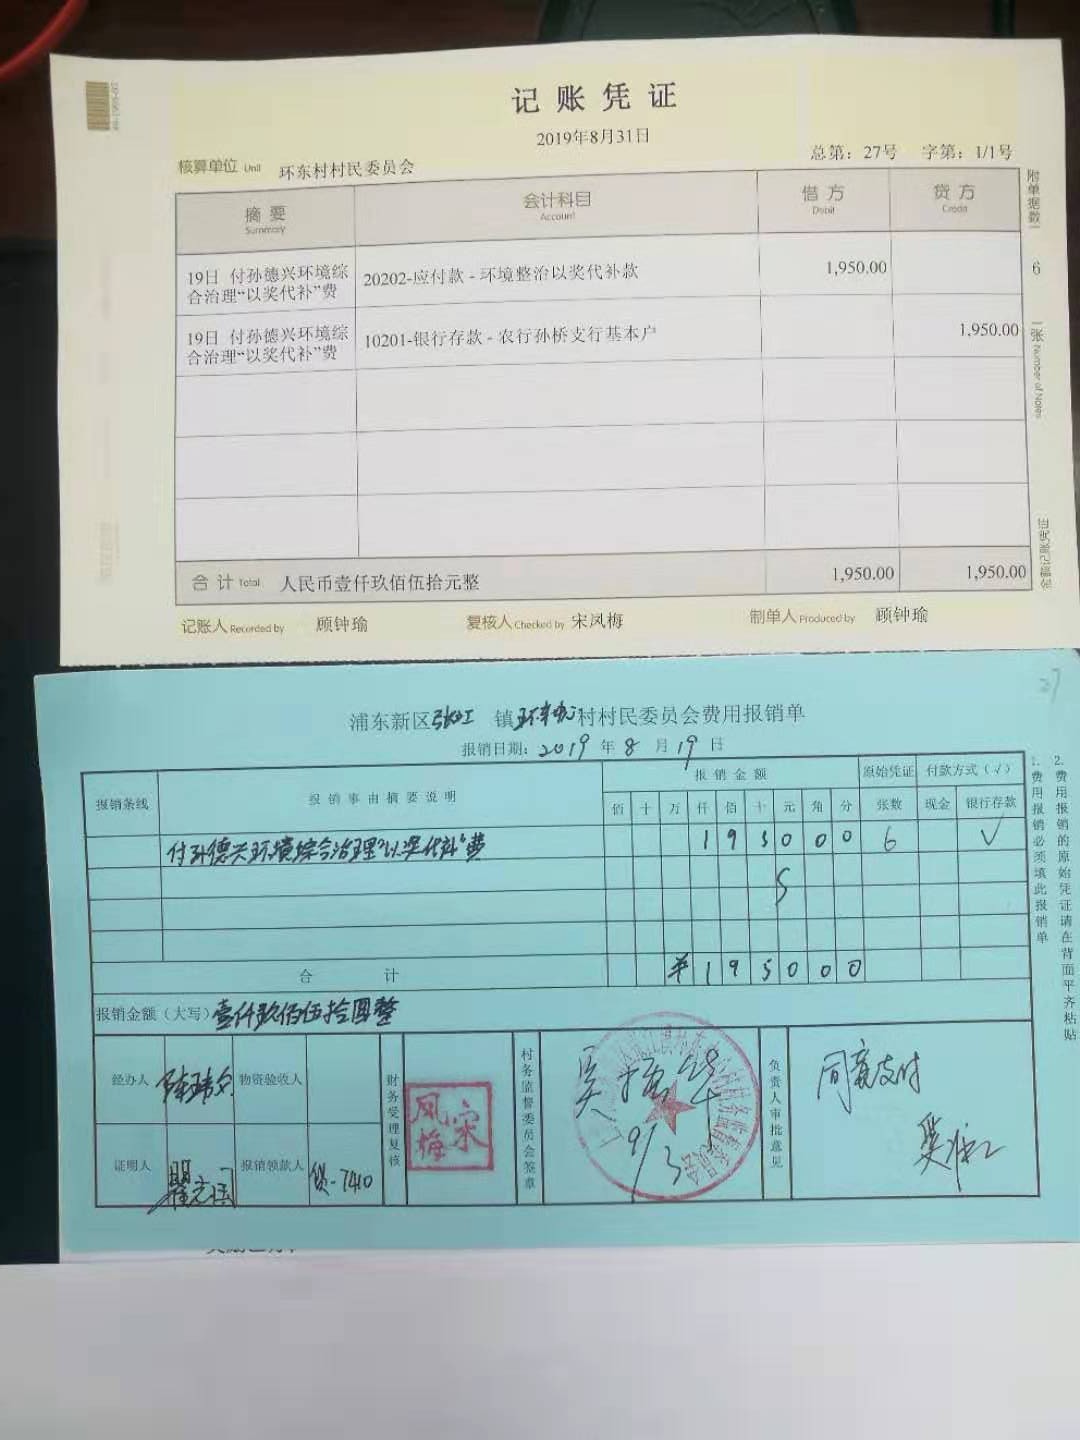 记账凭证
2019年8月31日
核算单位 Unit 环东村村民委员会
总第：27号 字第：1/1号
附单据数 6 张 Number of Notes
摘要 Summary 会计科目 Account 借方 Debit 贷方 Credit
19日 付孙德兴环境综合治理“以奖代补”费 20202-应付款 - 环境整治以奖代补款 1,950.00
19日 付孙德兴环境综合治理“以奖代补”费 10201-银行存款 - 农行孙桥支行基本户 1,950.00
合计 Total 人民币壹仟玖佰伍拾元整 1,950.00 1,950.00
记账人 Recorded by 顾钟瑜 复核人 Checked by 宋凤梅 制单人 Produced by 顾钟瑜
金额记账凭证
27
浦东新区张江 镇环东村村民委员会费用报销单
报销日期：2019 年 8 月 19 日
报销条线 报销事由摘要说明 报销金额 原始凭证 付款方式（√）
佰 十 万 仟 佰 十 元 角 分 张数 现金 银行存款
付孙德兴环境综合治理“以奖代补”费 1 9 5 0 0 0 6 √
合计 ¥ 1 9 5 0 0 0
报销金额（大写）壹仟玖佰伍拾圆整
经办人 物资验收人
证明人 瞿 报销领款人 -7410
财务受理复核 宋凤梅
村务监督委员会签章 吴 华 9/3
负责人审批意见 同意支付
1. 费用报销必须填此报销单
2. 费用报销的原始凭证请在背面平齐粘贴